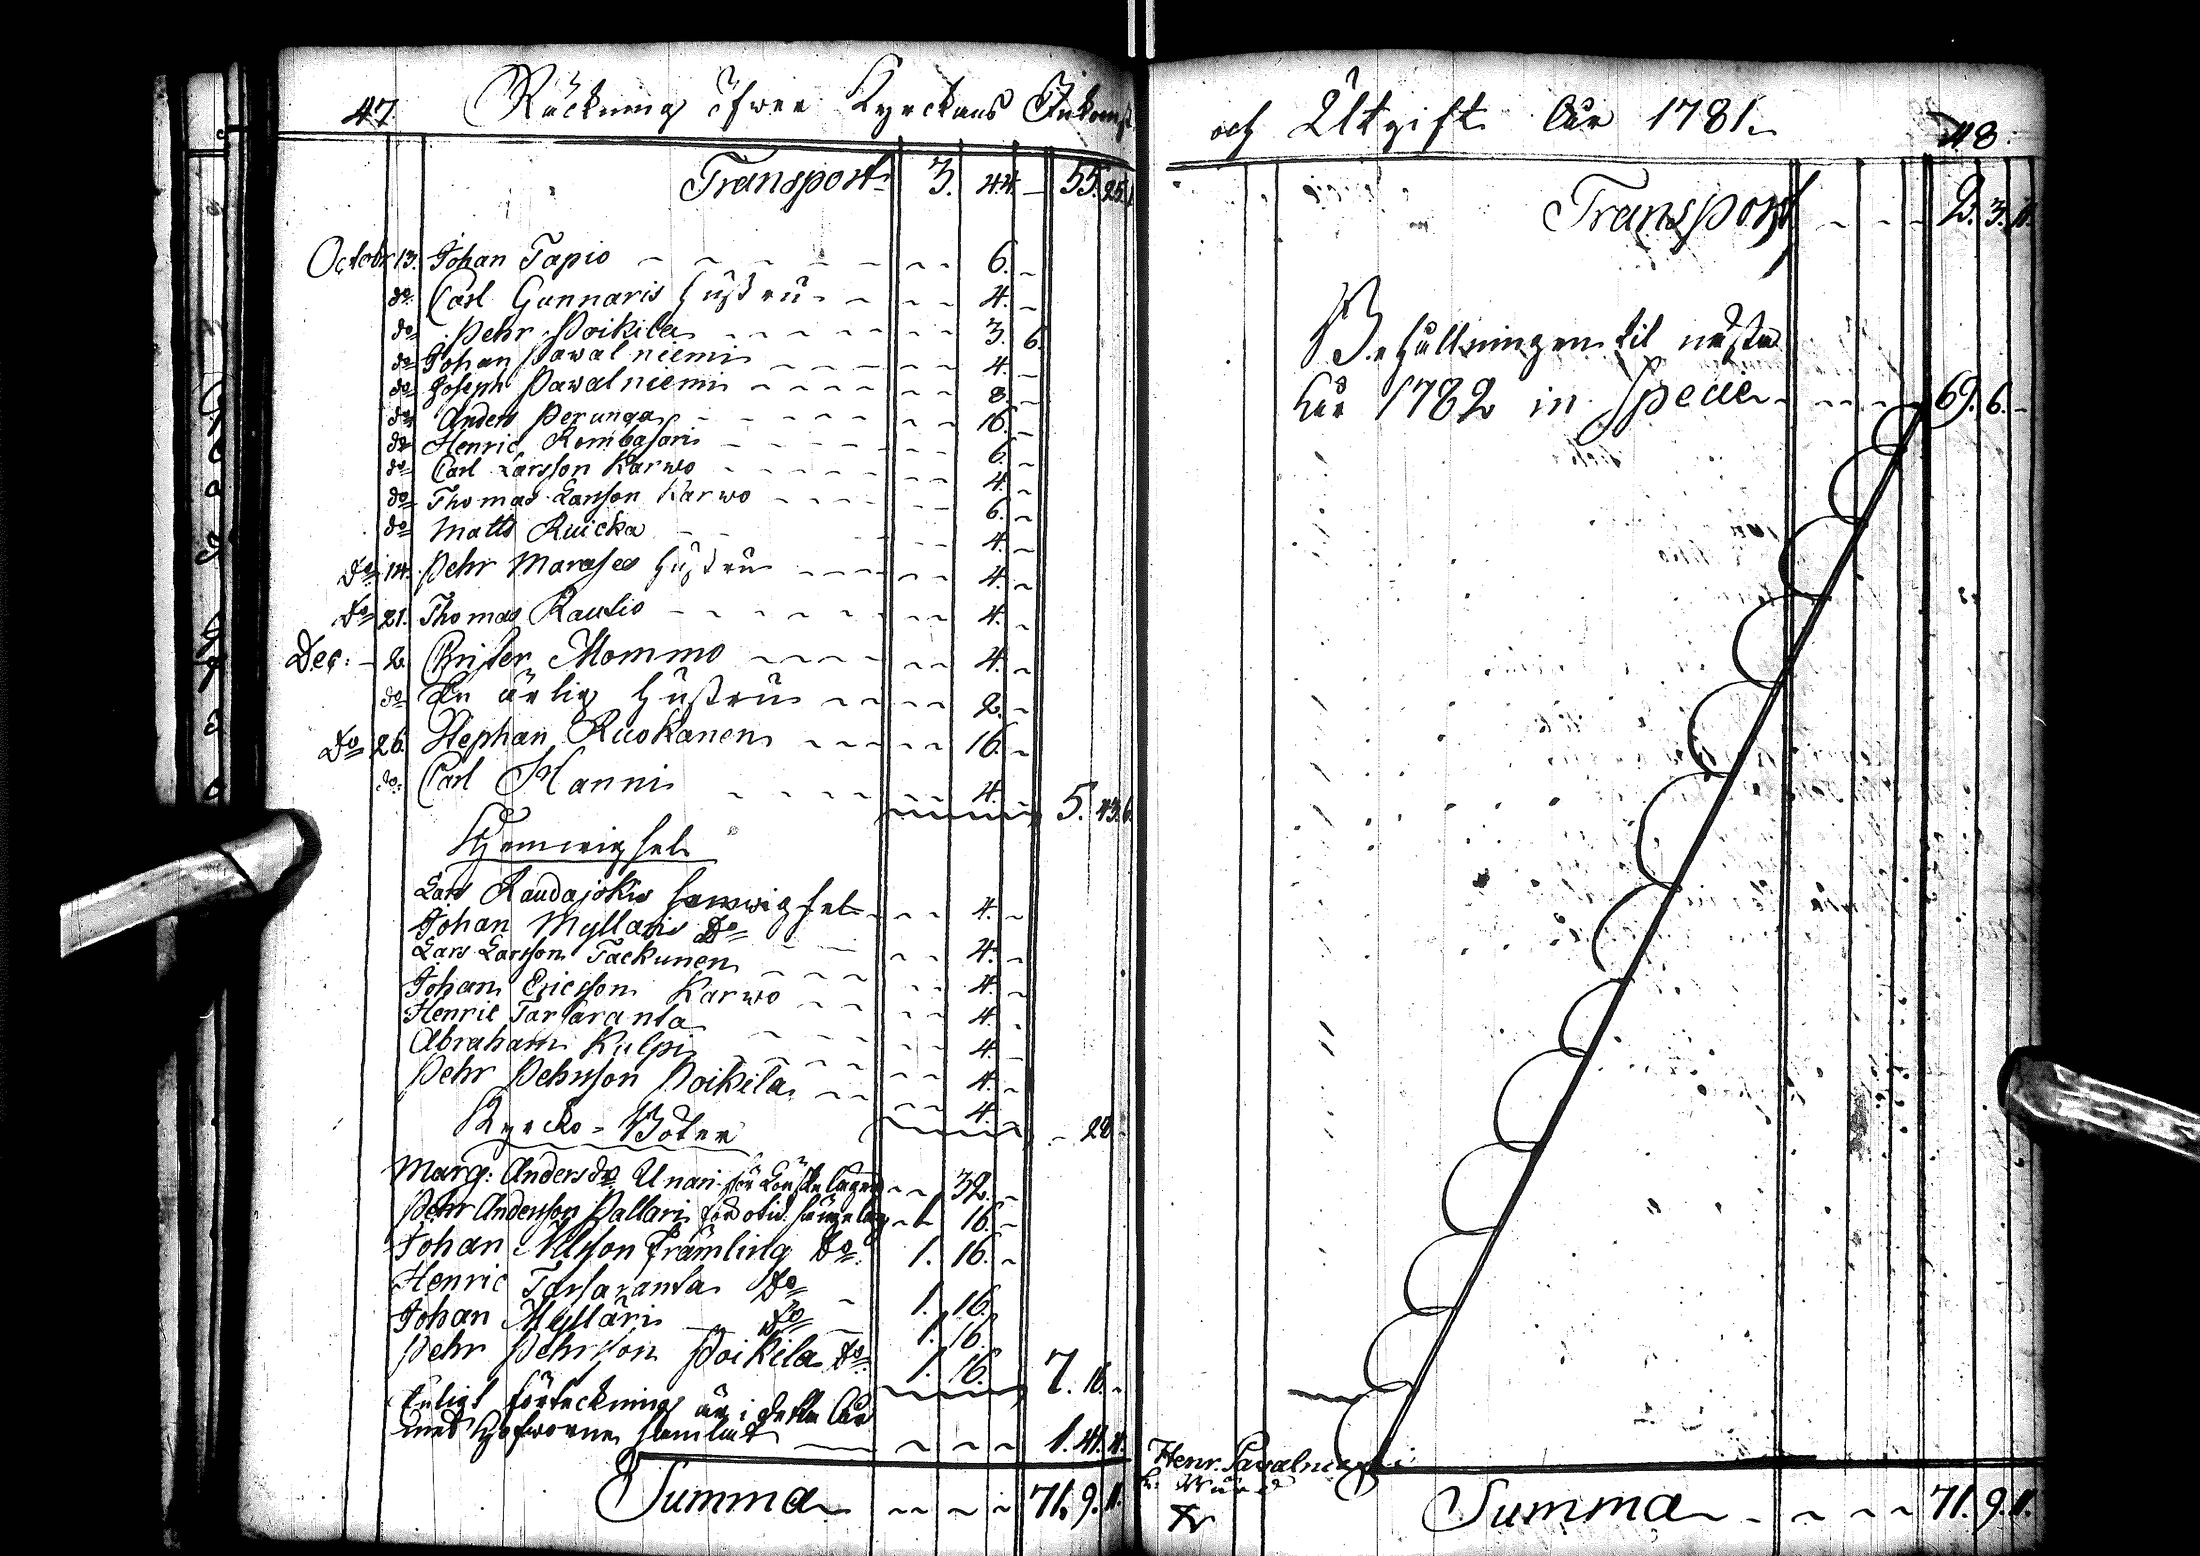 47. Räckning öfwer Kyrckans Inkomst
Transport 3. 44. – 55. 25. 1.
Octobr 13. Johan Tapio – – 6. –
do Carl Gunnaris hustru – – 4. –
do Pehr Poikila – – 3. 6.
do Johan Pawalniemi – – 4. –
do Joseph Pawalniemi – – 8. –
do Anders Perunga – – 16. –
do Henric – – 6. –
do Carl Larsson Karwo – – 4. –
do Thomas Larsson Karwo – – 6. –
do Matts Ruicka – – 4. –
Do 14. Pehr hustru – – 4. –
Do 21. Thomas Rautio – – 4. –
Dec: – 2. Christer Mommo – – 4. –
do En ärlig hustru – – 2. –
Do 26. Stephan Ruokanen – – 16. –
do Carl Hanni – – 4. – 5. 43. 6.
Hemwigsel
Lars Raudajokis hemwigsel – – 4. –
Johan Myllaris Do – – 4. –
Lars Larsson Tackunen – – 4. –
Johan Ericsson Karwo – – 4. –
Henric Tarsaranta – – 4. –
Abraham Kulpi – – 4. –
Pehr Pehrsson Poikila – – 4. – – 28. –
Kyrcko-Böter
Marg: Andersdr Unari för Löns – – 32. –
Pehr Andersson Pallari för otid: sängelag – 1. 16. –
Johan Nilsson Främling Do 1. 16. –
Henric Tarsaranta Do – 1. 16.
Johan Mylläri Do – 1. 16.
Pehr Pehrsson Poikila Do 1. 16. 7. 16. –
Enligt förteckning är i detta år
med Håfworne samlat – – – 1. 41. 4.
Summa – – – 71. 9. 11.
och Utgift År 1781. 48.
Transport – – – 2. 3. 11.
Behållningen til nästa
år 1782 in Specie – – – 69. 6. –
Henr. Pawalniemi
Summa – – – 71. 9. 11.